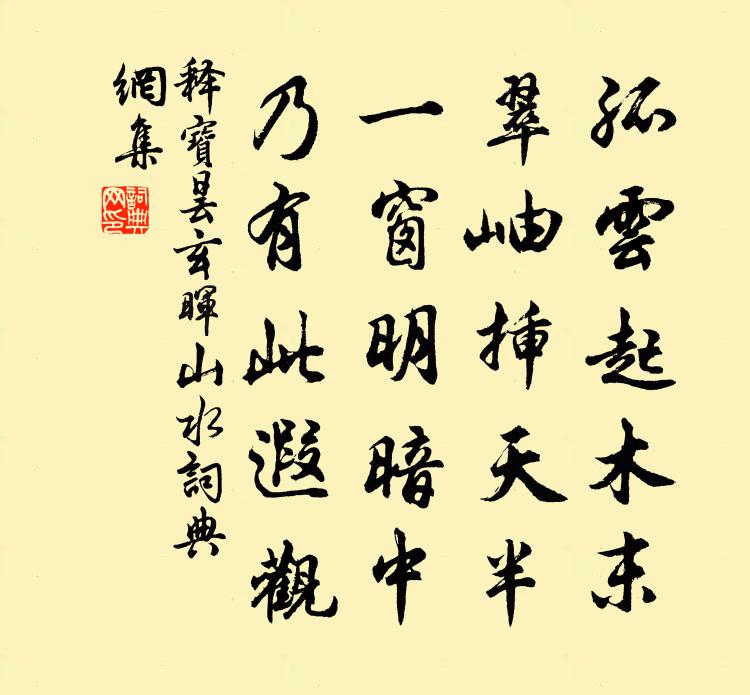 孤雲起木末
翠岫挿天半
一窗明暗中
乃有此遐觀
释寶曇玄暉山水詞典
網集
詞典網印